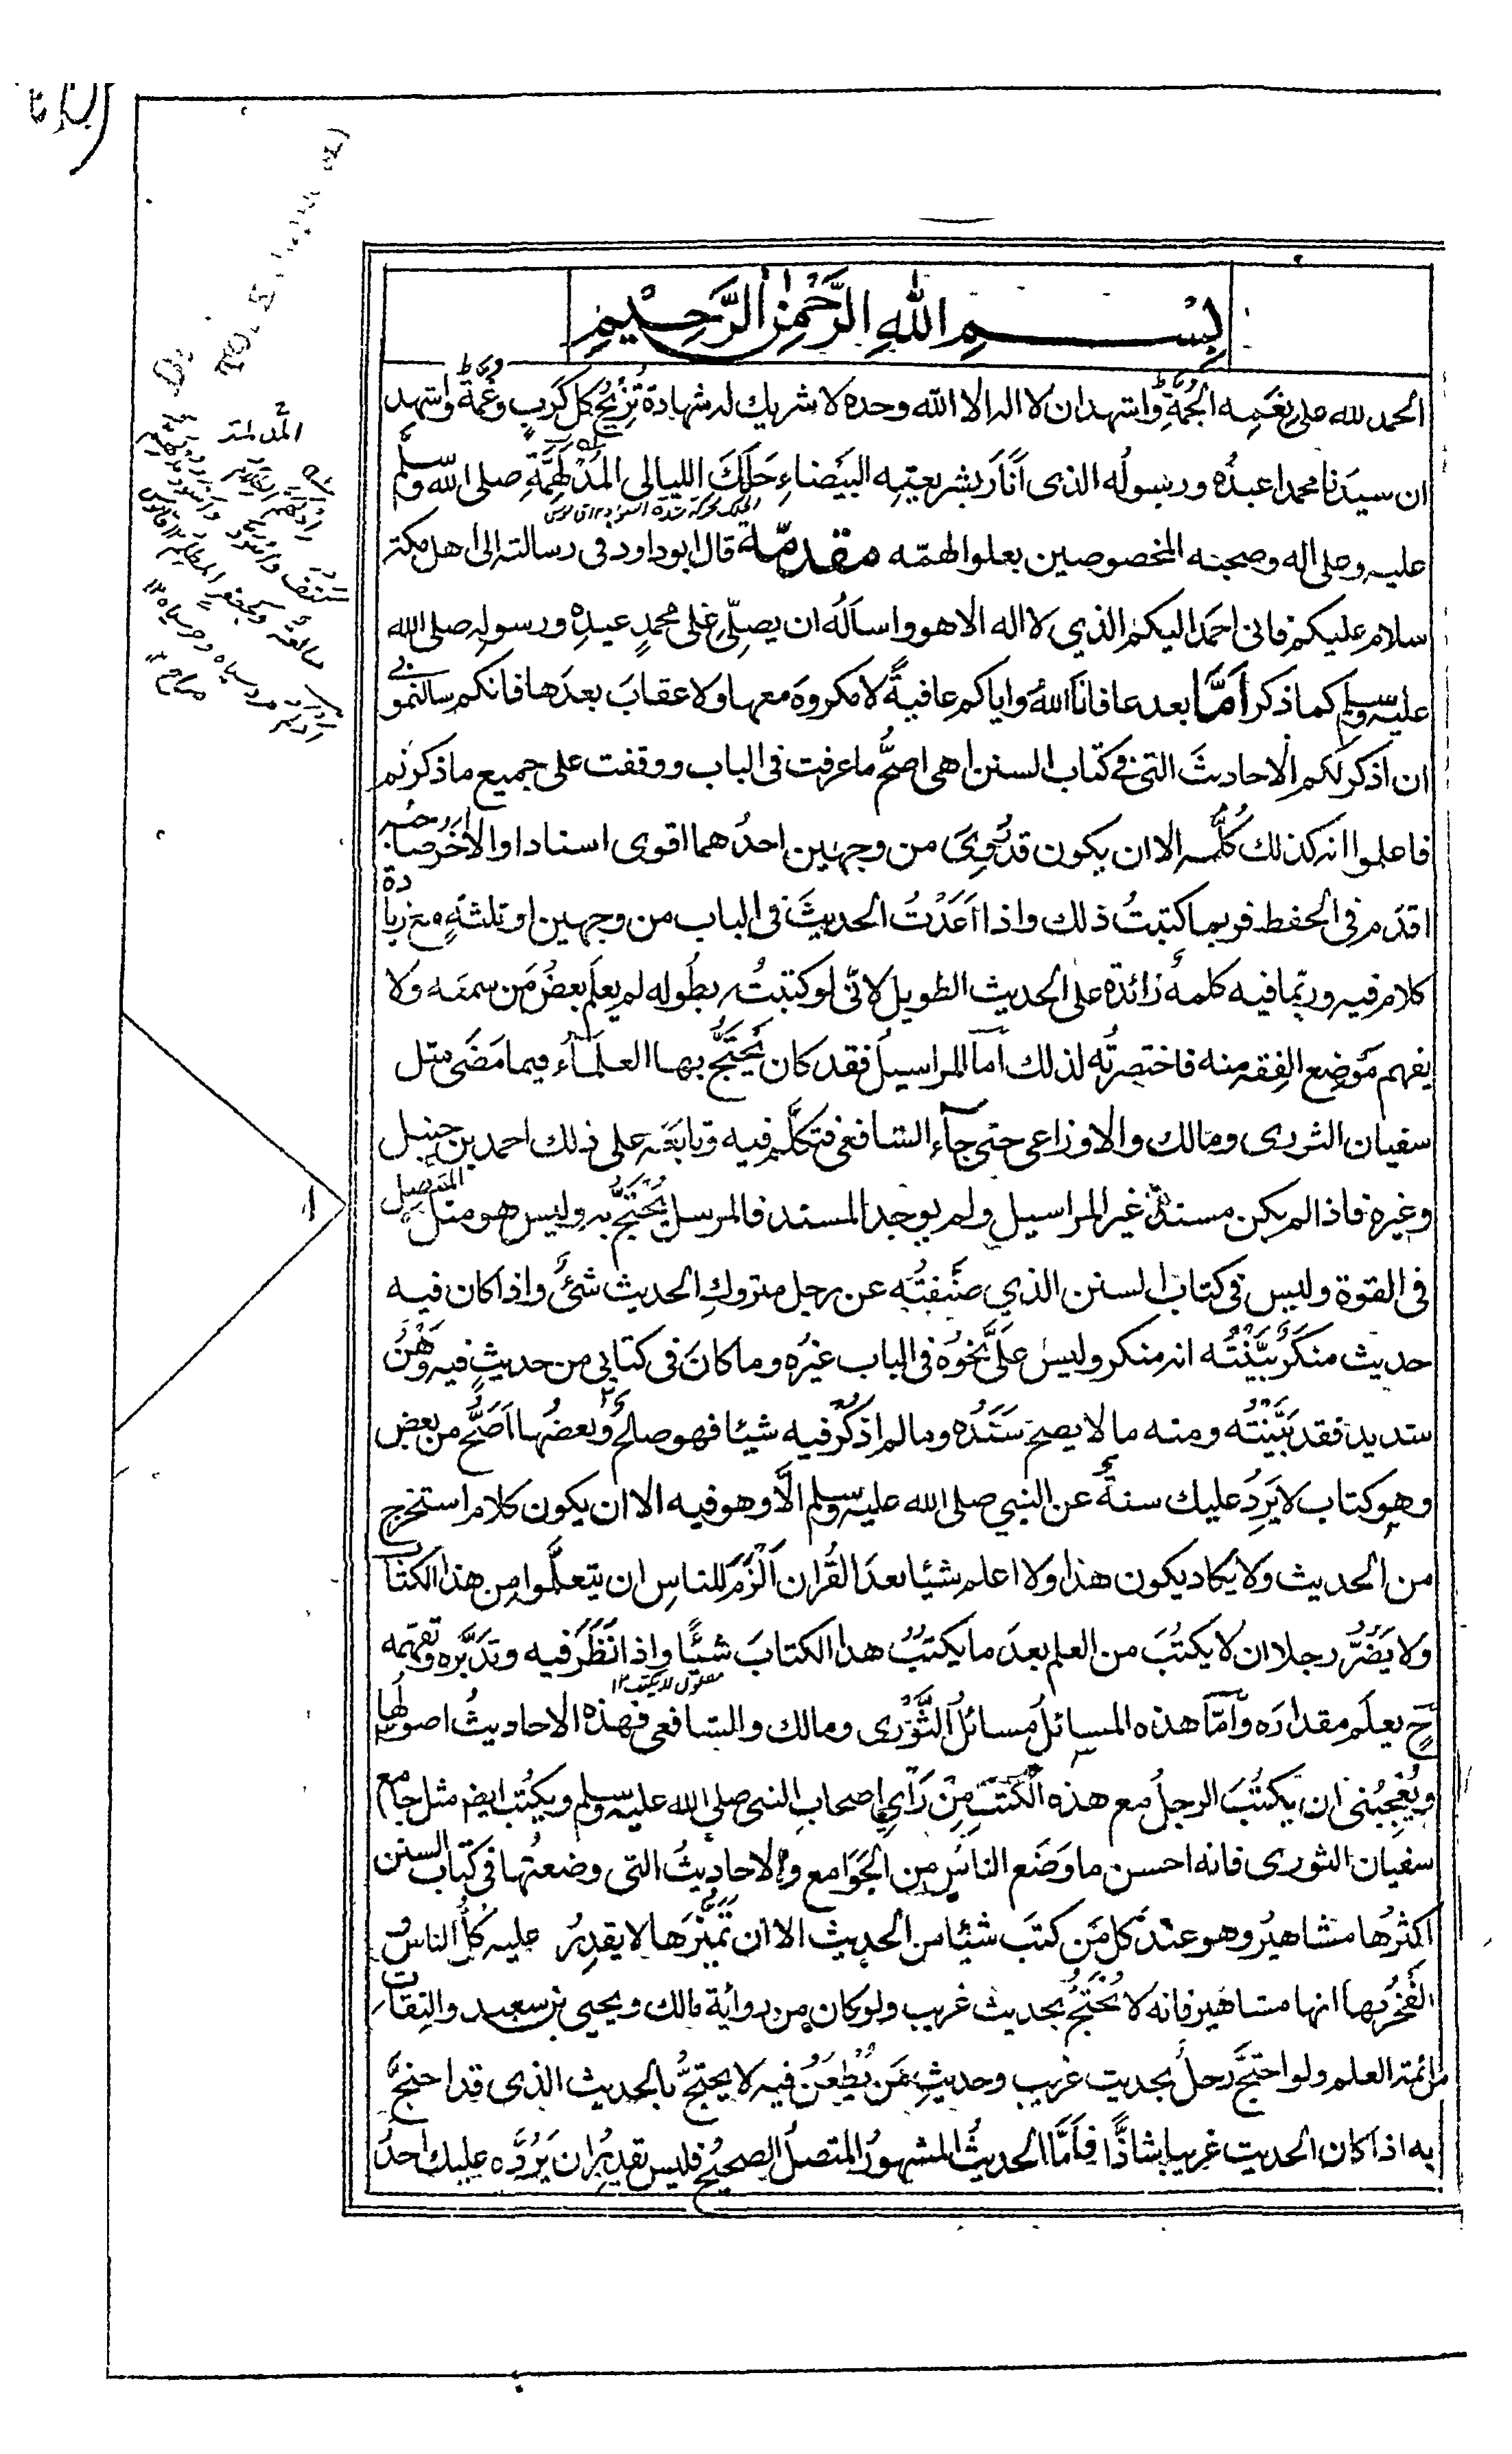 بسم الله الرحمن الرحيم
الحمد لله على نعمه الجمة واشهد ان لا اله الا الله وحده لا شريك له شهادة تزيح كل كرب وغمة واشهد
ان سيدنا محمدا عبده ورسوله الذى انار بشريعته البيضاء حلك الليالى المدلهمة صلى الله وسلم
عليه وعلى اله وصحبه المخصوصين بعلو الهمه مقدمة قال ابو داود فى رسالته الى اهل مكة
سلام عليكم فانى احمد اليكم الذي لا اله الا هو واساله ان يصلى على محمد عبده ورسوله صلى الله
عليه وسلم كما ذكر اما بعد عافانا الله واياكم عافية لا مكروه معها ولا عقاب بعدها فانكم سالتمونى
ان اذكر لكم الاحاديث التى فى كتاب السنن اهى اصح ما عرفت فى الباب ووقفت على جميع ما ذكرتم
فاعلموا انه كذلك كله الا ان يكون قد روى من وجهين احدهما اقوى اسنادا والاخر صاحبه
اقدم فى الحفظ فربما كتبت ذلك واذا اعدت الحديث فى الباب من وجهين او ثلثة مع زيادة
كلام فيه وربما فيه كلمة زائدة على الحديث الطويل لانى لو كتبت بطوله لم يعلم بعض من سمعه ولا
يفهم موضع الفقه منه فاختصرته لذلك اما المراسيل فقد كان يحتج بها العلماء فيما مضى مثل
سفيان الثورى ومالك والاوزاعى حتى جاء الشافعى فتكلم فيه وتابعه على ذلك احمد بن حنبل
وغيره فاذا لم يكن مسند غير المراسيل ولم يوجد المسند فالمرسل يحتج به وليس هو مثل المتصل
فى القوة وليس فى كتاب السنن الذي صنفته عن رجل متروك الحديث شئ واذا كان فيه
حديث منكر بينته انه منكر وليس على نحوه فى الباب غيره وما كان فى كتابى من حديث فيه وهن
شديد فقد بينته ومنه ما لا يصح سنده وما لم اذكر فيه شيئا فهو صالح وبعضها اصح من بعض
وهو كتاب لا يرد عليك سنة عن النبي صلى الله عليه وسلم الا وهو فيه الا ان يكون كلام استخرج
من الحديث ولا يكاد يكون هذا ولا اعلم شيئا بعد القران الزم للناس ان يتعلموا من هذا الكتاب
ولا يضر رجلا ان لا يكتب من العلم بعد ما يكتب هذا الكتاب شيئا واذا نظر فيه وتدبره وتفهمه
ح يعلم مقداره واما هذه المسائل مسائل الثورى ومالك والشافعى فهذه الاحاديث اصولها
ويعجبنى ان يكتب الرجل مع هذه الكتب من راى اصحاب النبى صلى الله عليه وسلم ويكتب ايضا مثل جامع
سفيان الثورى فانه احسن ما وضع الناس من الجوامع والاحاديث التى وضعتها فى كتاب السنن
اكثرها مشاهير وهو عند كل من كتب شيئا من الحديث الا ان تميزها لا يقدر عليه كل الناس
الفخر بها انها مشاهير فانه لا يحتج بحديث غريب ولو كان من رواية مالك ويحيى بن سعيد والثقات
من ائمة العلم ولو احتج رجل بحديث غريب وحديث من يطعن فيه لا يحتج بالحديث الذى قد احتج
به اذا كان الحديث غريبا شاذا فاما الحديث المشهور المتصل الصحيح فليس تقدير ان يرده عليك احد